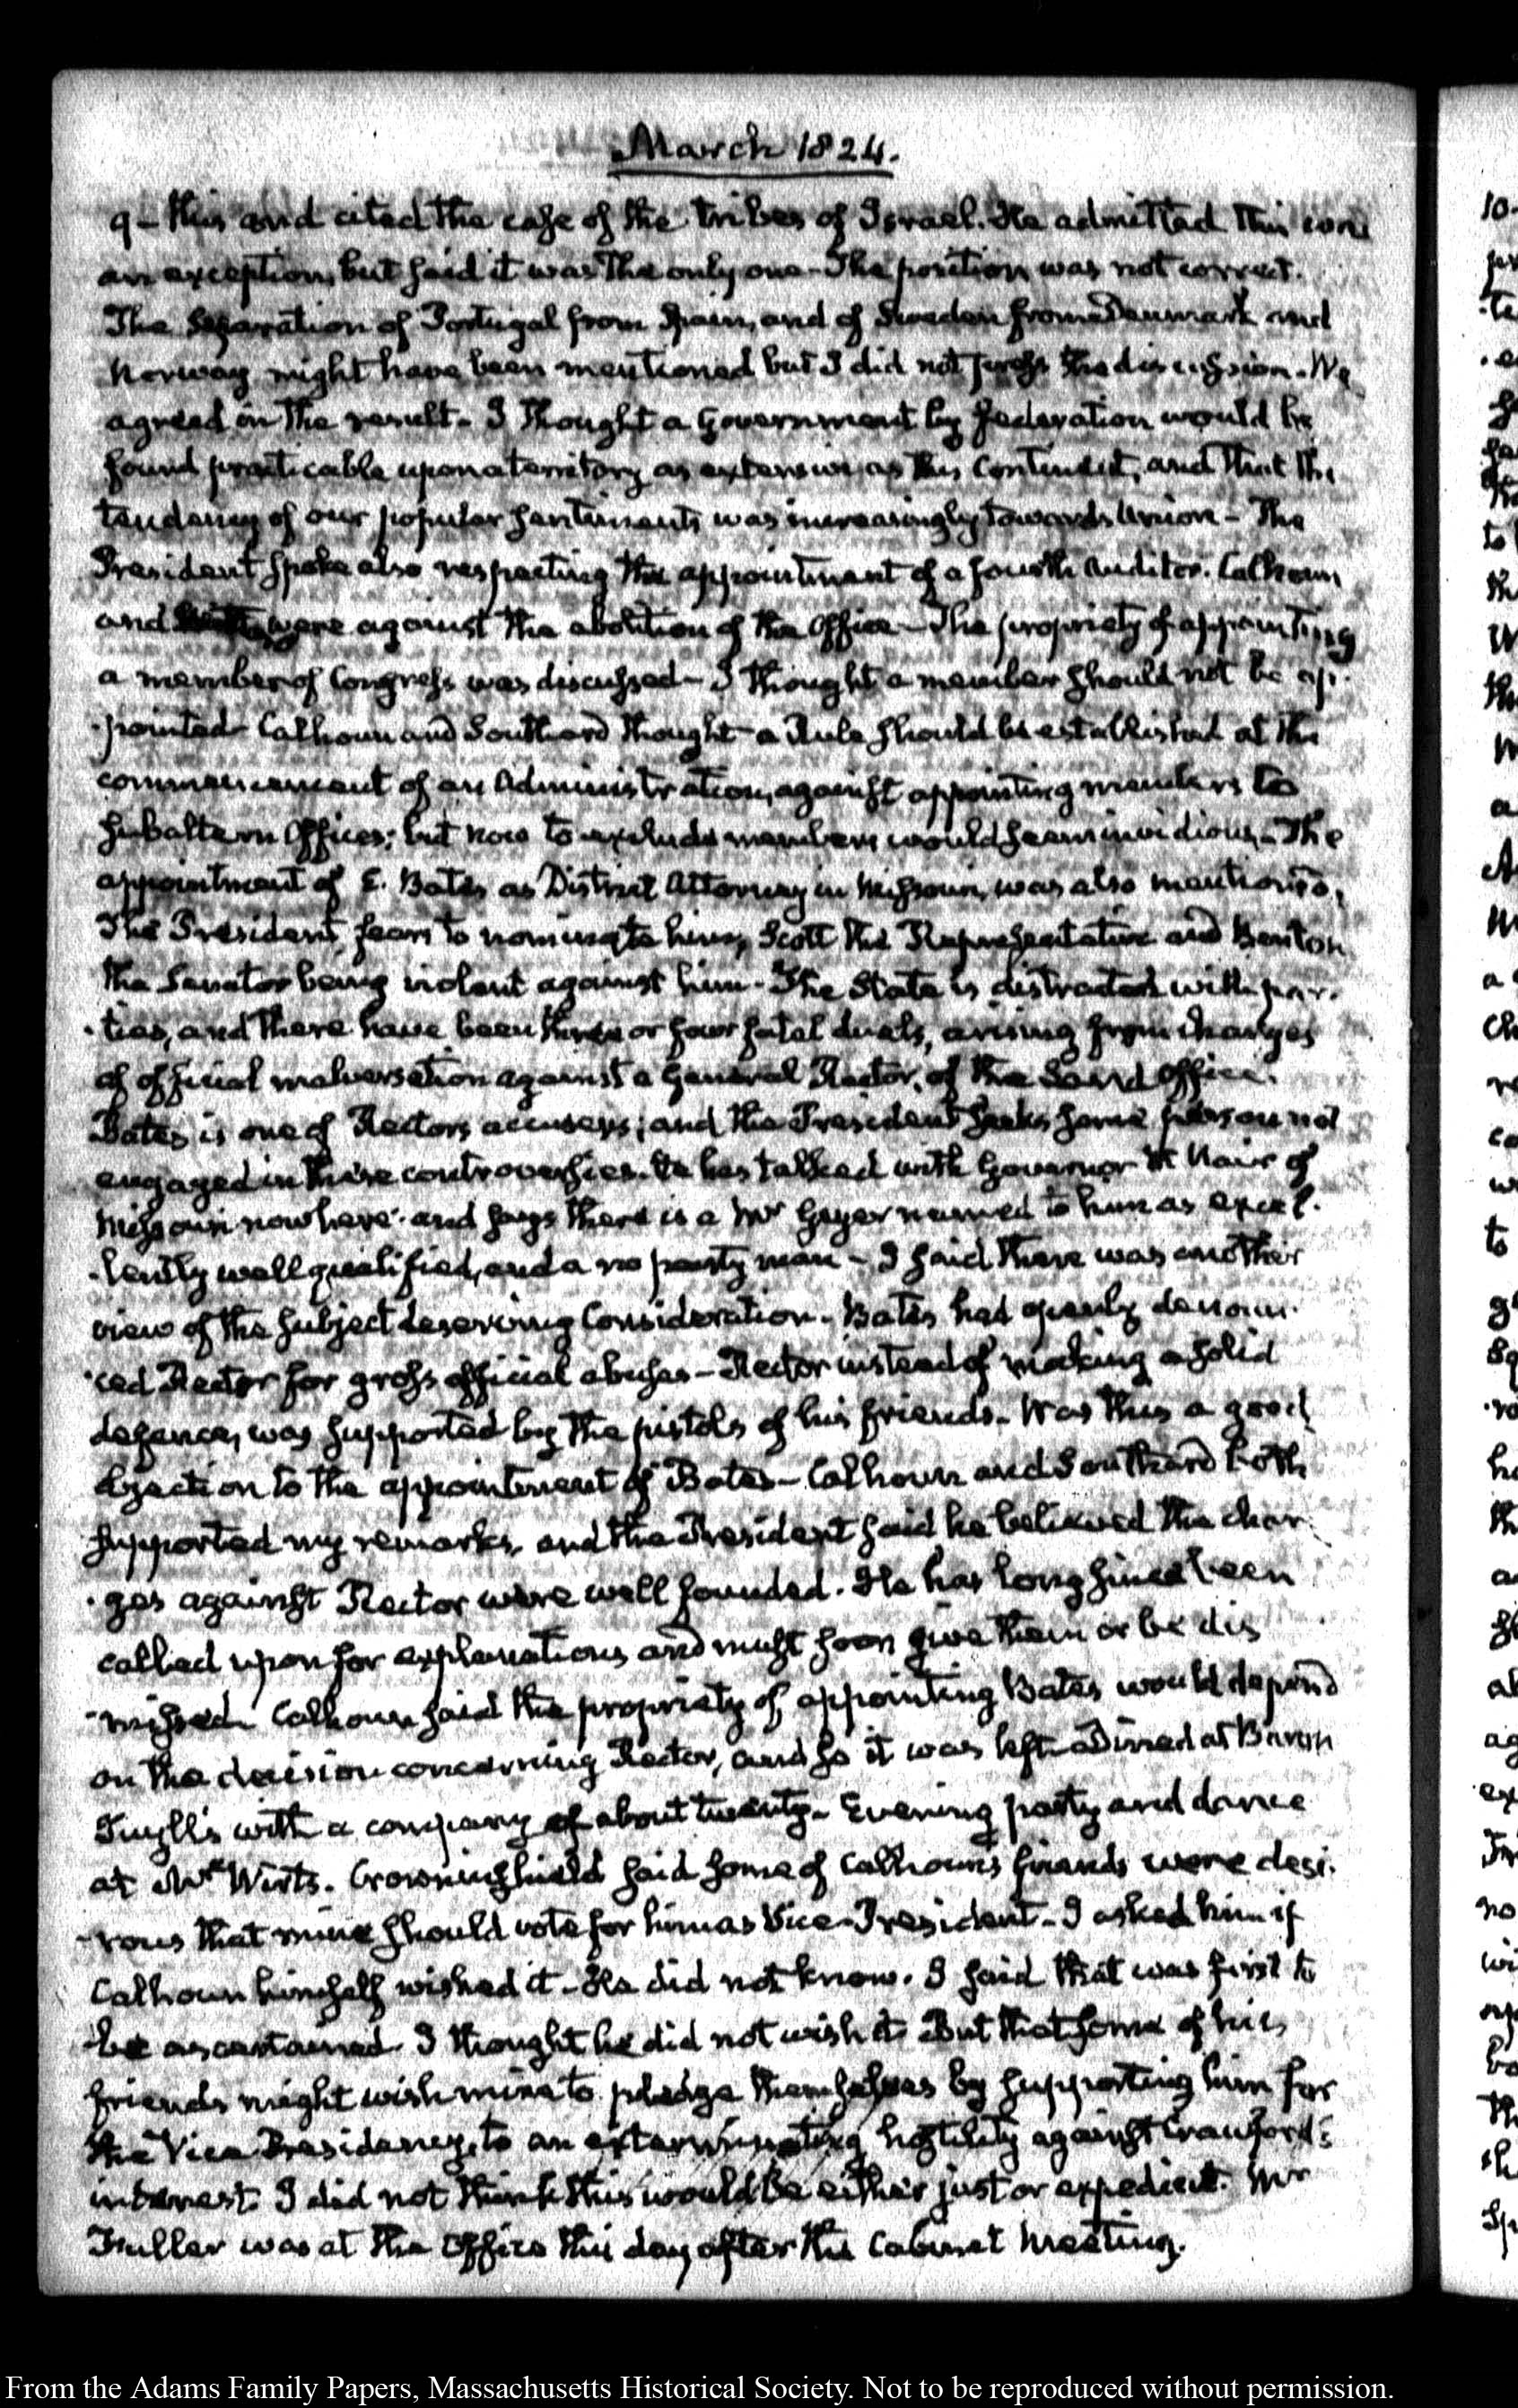 March 1824.
9 - this and cited the case of the tribes of Israel. He admitted this was
an exception, but said it was the only one - The position was not correct.
The Separation of Portugal from Spain, and of Sweden from Denmark and
Norway might have been mentioned but I did not press the discussion - We
agreed in the result - I thought a Government by federation would be
found practicable upon a territory as extensive as this Continent, and that the
tendency of our popular sentiments was increasingly towards Union - The
President spoke also respecting the appointment of a fourth Auditor. Calhoun
and were against the abolition of the Office - The propriety of appointing
a member of Congress was discussed - I thought a member should not be ap-
-pointed - Calhoun and Southard thought a Rule should be established at the
commencement of an Administration, against appointing members to
subaltern Offices; but now to exclude members would seem invidious - The
appointment of E. Bates as District Attorney in Missouri, was also mentioned,
The President fears to nominate him, Scott the Representative and Benton
the Senator being violent against him - The State is distracted with par-
-ties, and there have been three or four fatal duels, arising from charges
of official malversation against a General Rector, of the Land Office.
Bates is one of Rectors accusers; and the President seeks some person not
engaged in these controversies. He has talked with Governor McNair of
Missouri now here - and says there is a Mr Geyer named to him as excel-
-lently well qualified, and a no party man - I said there was another
view of the subject deserving Consideration - Bates had openly denoun-
-ced Rector for gross official abuses - Rector instead of making a solid
defence, was supported by the pistols of his friends - Was this a good
objection to the appointment of Bates - Calhoun and Southard both
supported my remarks, and the President said he believed the char-
-ges against Rector were well founded. He has long since been
called upon for explanations and must soon give them or be dis
-missed - Calhoun said the propriety of appointing Bates would depend
on the decision concerning Rector, and so it was left - Dined at Baron
Tuyll's with a company of about twenty - Evening party and dance
at Mrs Wirts. Crowninshield said some of Calhoun's friends were desi-
-rous that mine should vote for him as Vice-President - I asked him if
Calhoun himself wished it - He did not know. I said that was first to
be ascertained. I thought he did not wish it - But that some of his
friends might wish mine to pledge themselves by supporting him for
the Vice Presidency, to an exterminating hostility against Crawford's
interest. I did not think this would be either just or expedient. Mr
Fuller was at the Office this day after the Cabinet Meeting.
From the Adams Family Papers, Massachusetts Historical Society. Not to be reproduced without permission.